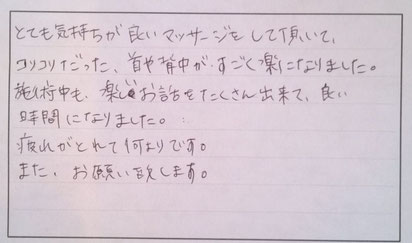 とても気持ちが良いマッサージをして頂いて、
コリコリだった、首や背中が、すごく楽になりました。
施術中も、楽しいお話をたくさん出来て、良い
時間になりました。
疲れがとれて何よりです。
また、お願い致します。